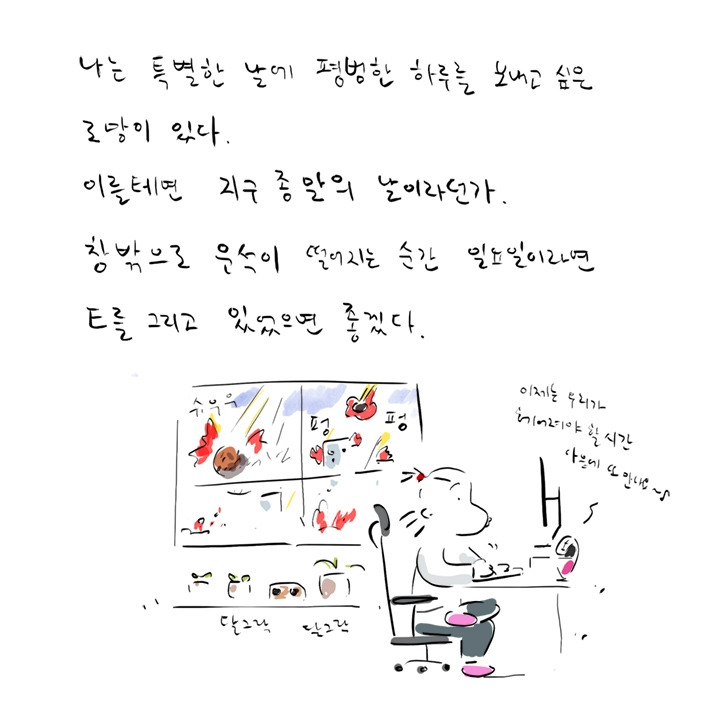 나는 특별한 날에 평범한 하루를 보내고 싶은
로망이 있다.
이를테면 지구 종말의 날이라던가.
창밖으로 운석이 떨어지는 순간 일요일이라면
E를 그리고 있었으면 좋겠다.
슈우욱
펑
펑
이제는 우리가
헤어져야 할 시간
다음에 또 만나요~♪
달그락
달그락